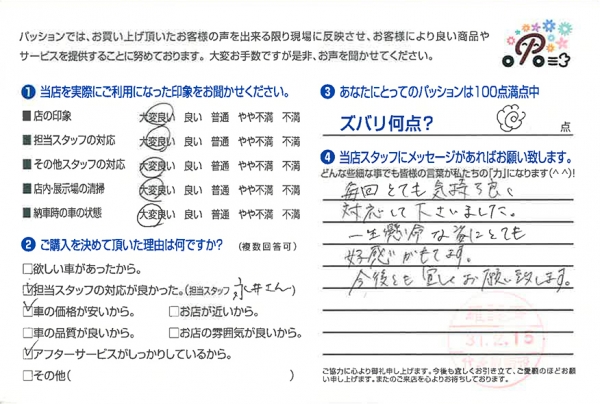 パッションでは、お買い上げ頂いたお客様の声を出来る限り現場に反映させ、お客様により良い商品や
サービスを提供することに努めております。大変お手数ですが是非、お声を聞かせてください。
❶ 当店を実際にご利用になった印象をお聞かせください。
■ 店の印象 大変良い 良い 普通 やや不満 不満
■ 担当スタッフの対応 大変良い 良い 普通 やや不満 不満
■ その他スタッフの対応 大変良い 良い 普通 やや不満 不満
■ 店内・展示場の清掃 大変良い 良い 普通 やや不満 不満
■ 納車時の車の状態 大変良い 良い 普通 やや不満 不満
❷ ご購入を決めて頂いた理由は何ですか? (複数回答可)
□欲しい車があったから。
☑担当スタッフの対応が良かった。(担当スタッフ 永井さん)
☑車の価格が安いから。 □お店が近いから。
□車の品質が良いから。 □お店の雰囲気が良いから。
☑アフターサービスがしっかりしているから。
□その他( )
❸ あなたにとってのパッションは100点満点中
ズバリ何点? 点
❹ 当店スタッフにメッセージがあればお願い致します。
どんな些細な事でも皆様の言葉が私たちの「力」になります(^ ^)!
毎回とても気持ち良く
対応して下さいました。
一生懸命な姿にとても
好感がもてます。
今後とも宜しくお願い致します。
31.2.15
ご協力に心より御礼申し上げます。今後も宜しくお引き立て、ご愛顧のほどお願
い申し上げます。またのご来店を心よりお待ちしております。